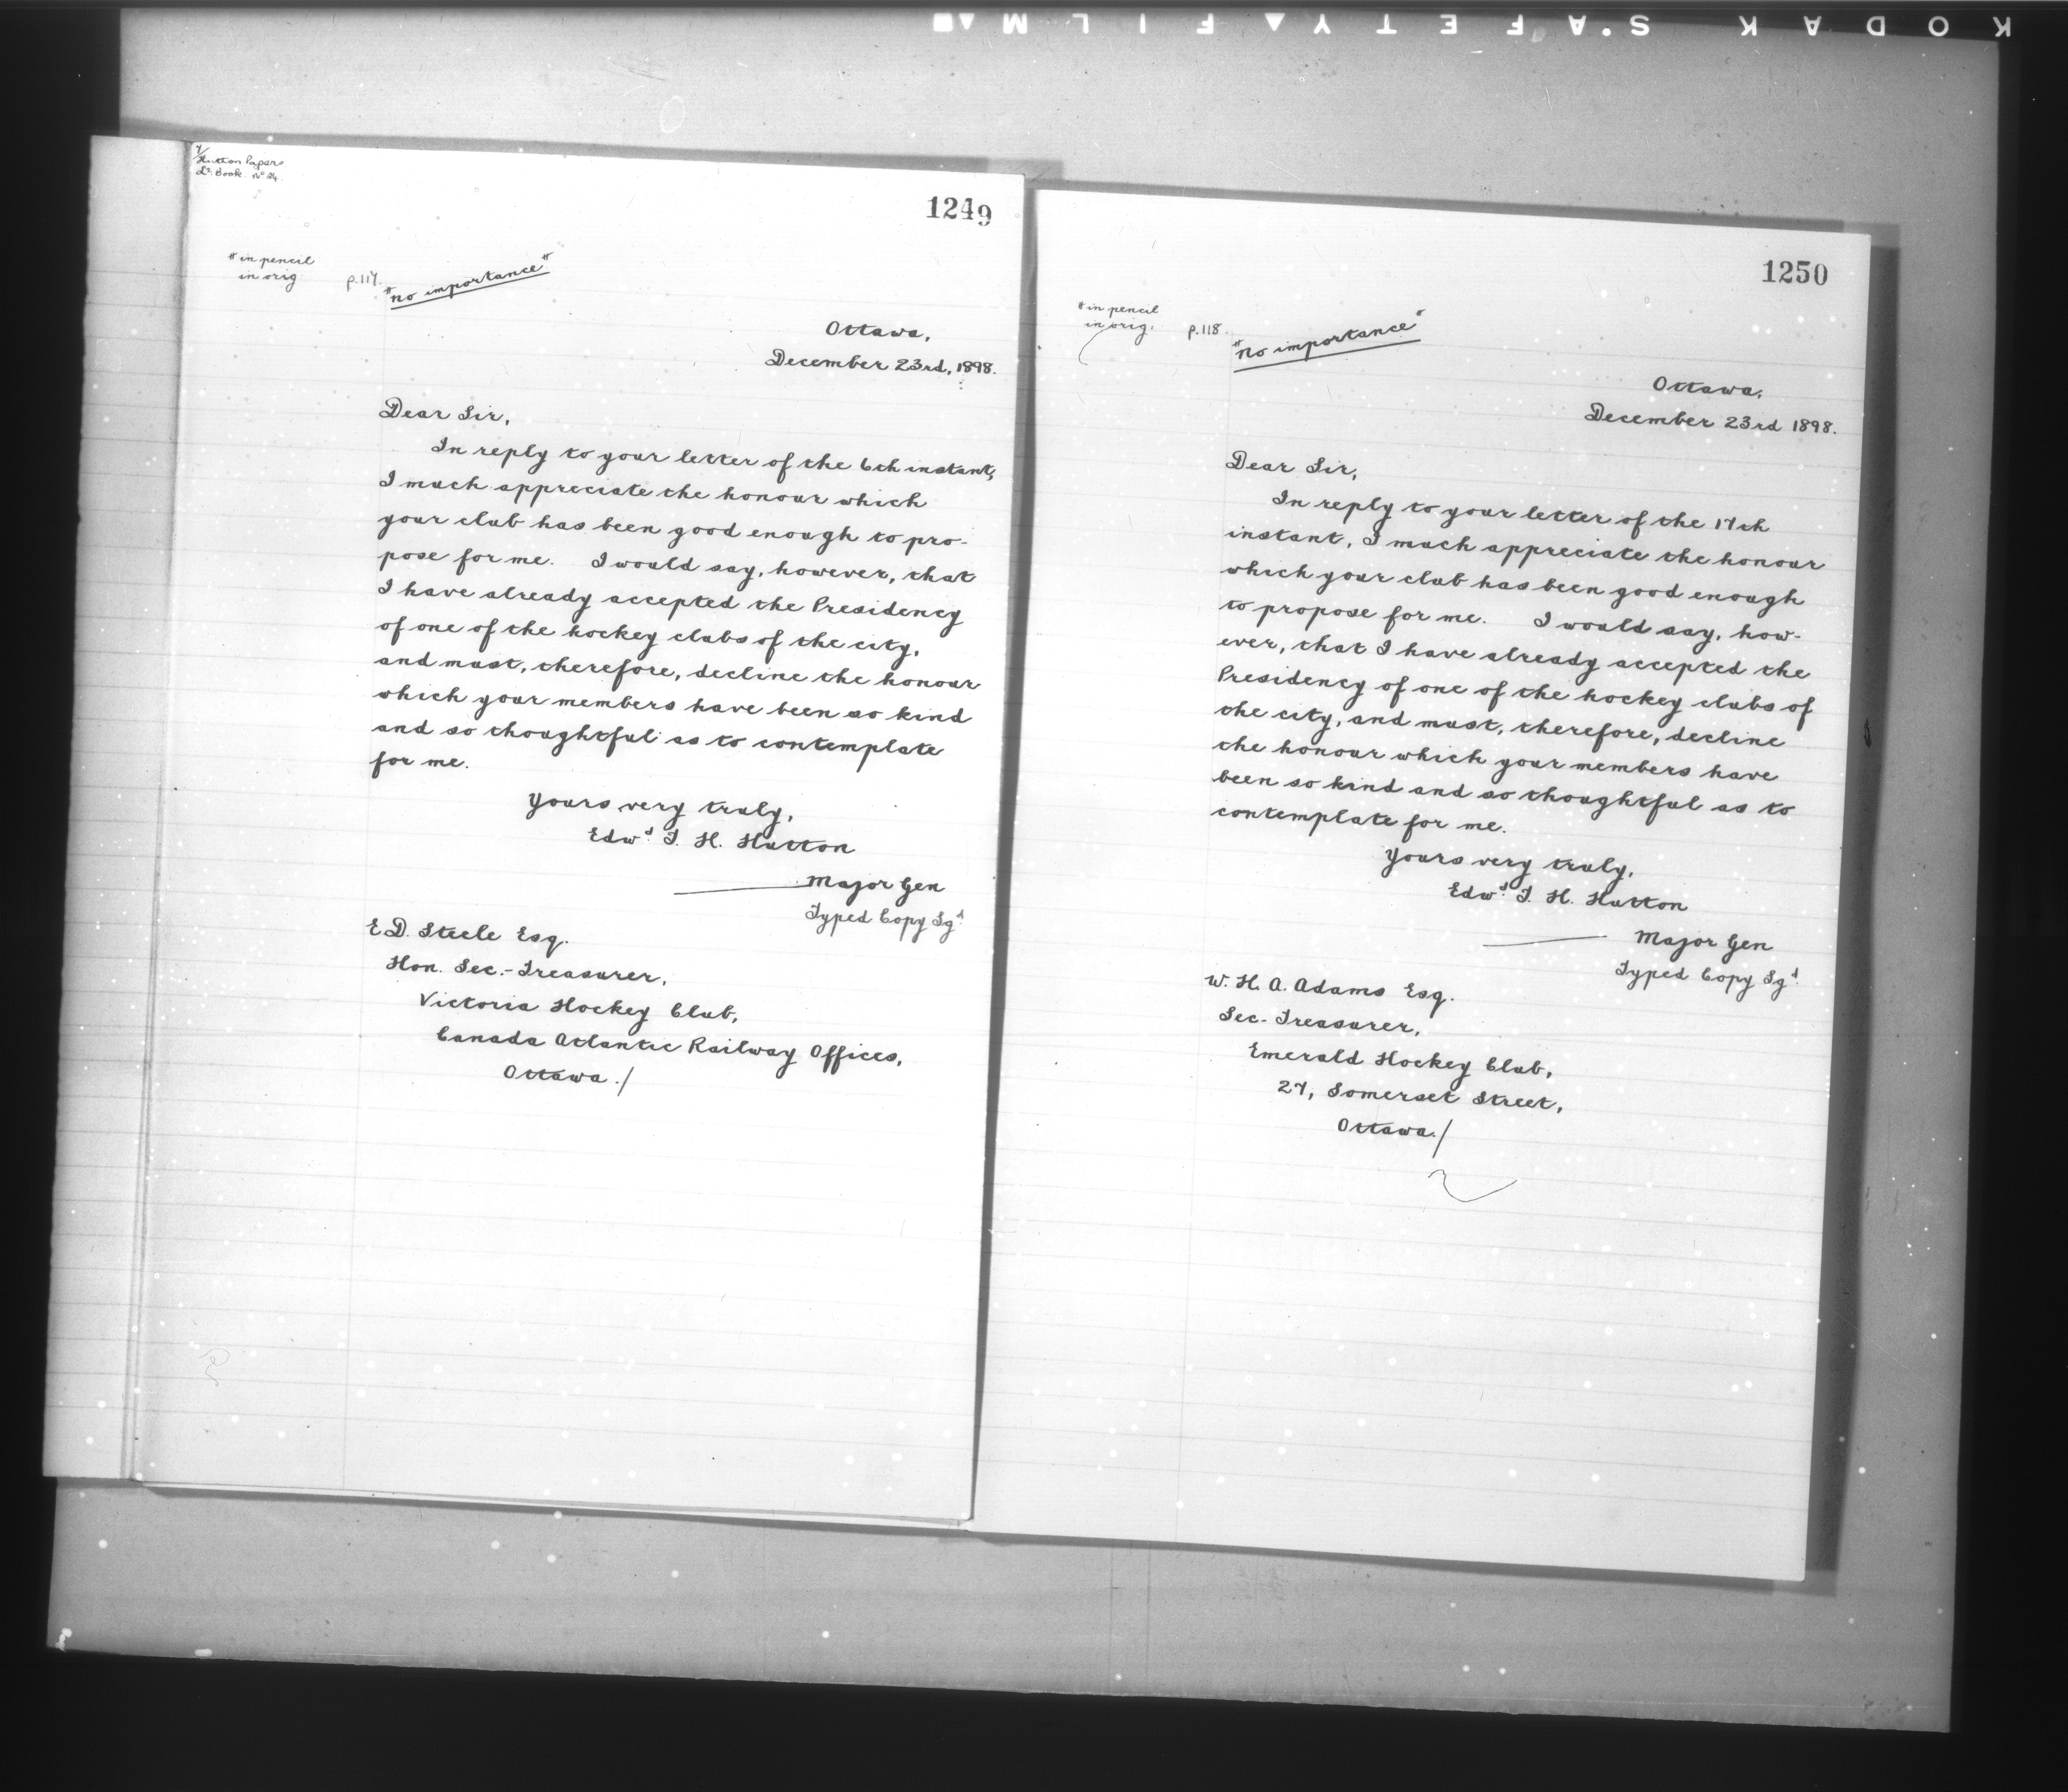 KODAK S·AFETY▲FILM
Hutton Papers
Lr. Book. No 24.
1249
" in pencil
in orig
p.117.
"no importance"
Ottawa,
December 23rd, 1898.
Dear Sir,
In reply to your letter of the 6th instant,
I much appreciate the honour which
your club has been good enough to pro-
pose for me. I would say, however, that
I have already accepted the Presidency
of one of the hockey clubs of the city,
and must, therefore, decline the honour
which your members have been so kind
and so thoughtful as to contemplate
for me.
Yours very truly,
Edwd. T. H. Hutton
Major Gen
Typed Copy Sgd.
E D. Steele Esq.
Hon. Sec.-Treasurer,
Victoria Hockey Club,
Canada Atlantic Railway Offices,
Ottawa./
1250
" in pencil
in orig.
p.118.
"no importance"
Ottawa,
December 23rd 1898.
Dear Sir,
In reply to your letter of the 17th
instant, I much appreciate the honour
which your club has been good enough
to propose for me. I would say, how-
ever, that I have already accepted the
Presidency of one of the hockey clubs of
the city, and must, therefore, decline
the honour which your members have
been so kind and so thoughtful as to
contemplate for me.
Yours very truly,
Edwd. T. H. Hutton
Major Gen
Typed Copy Sgd.
W. H. A. Adams Esq.
Sec-Treasurer,
Emerald Hockey Club,
27, Somerset Street,
Ottawa./